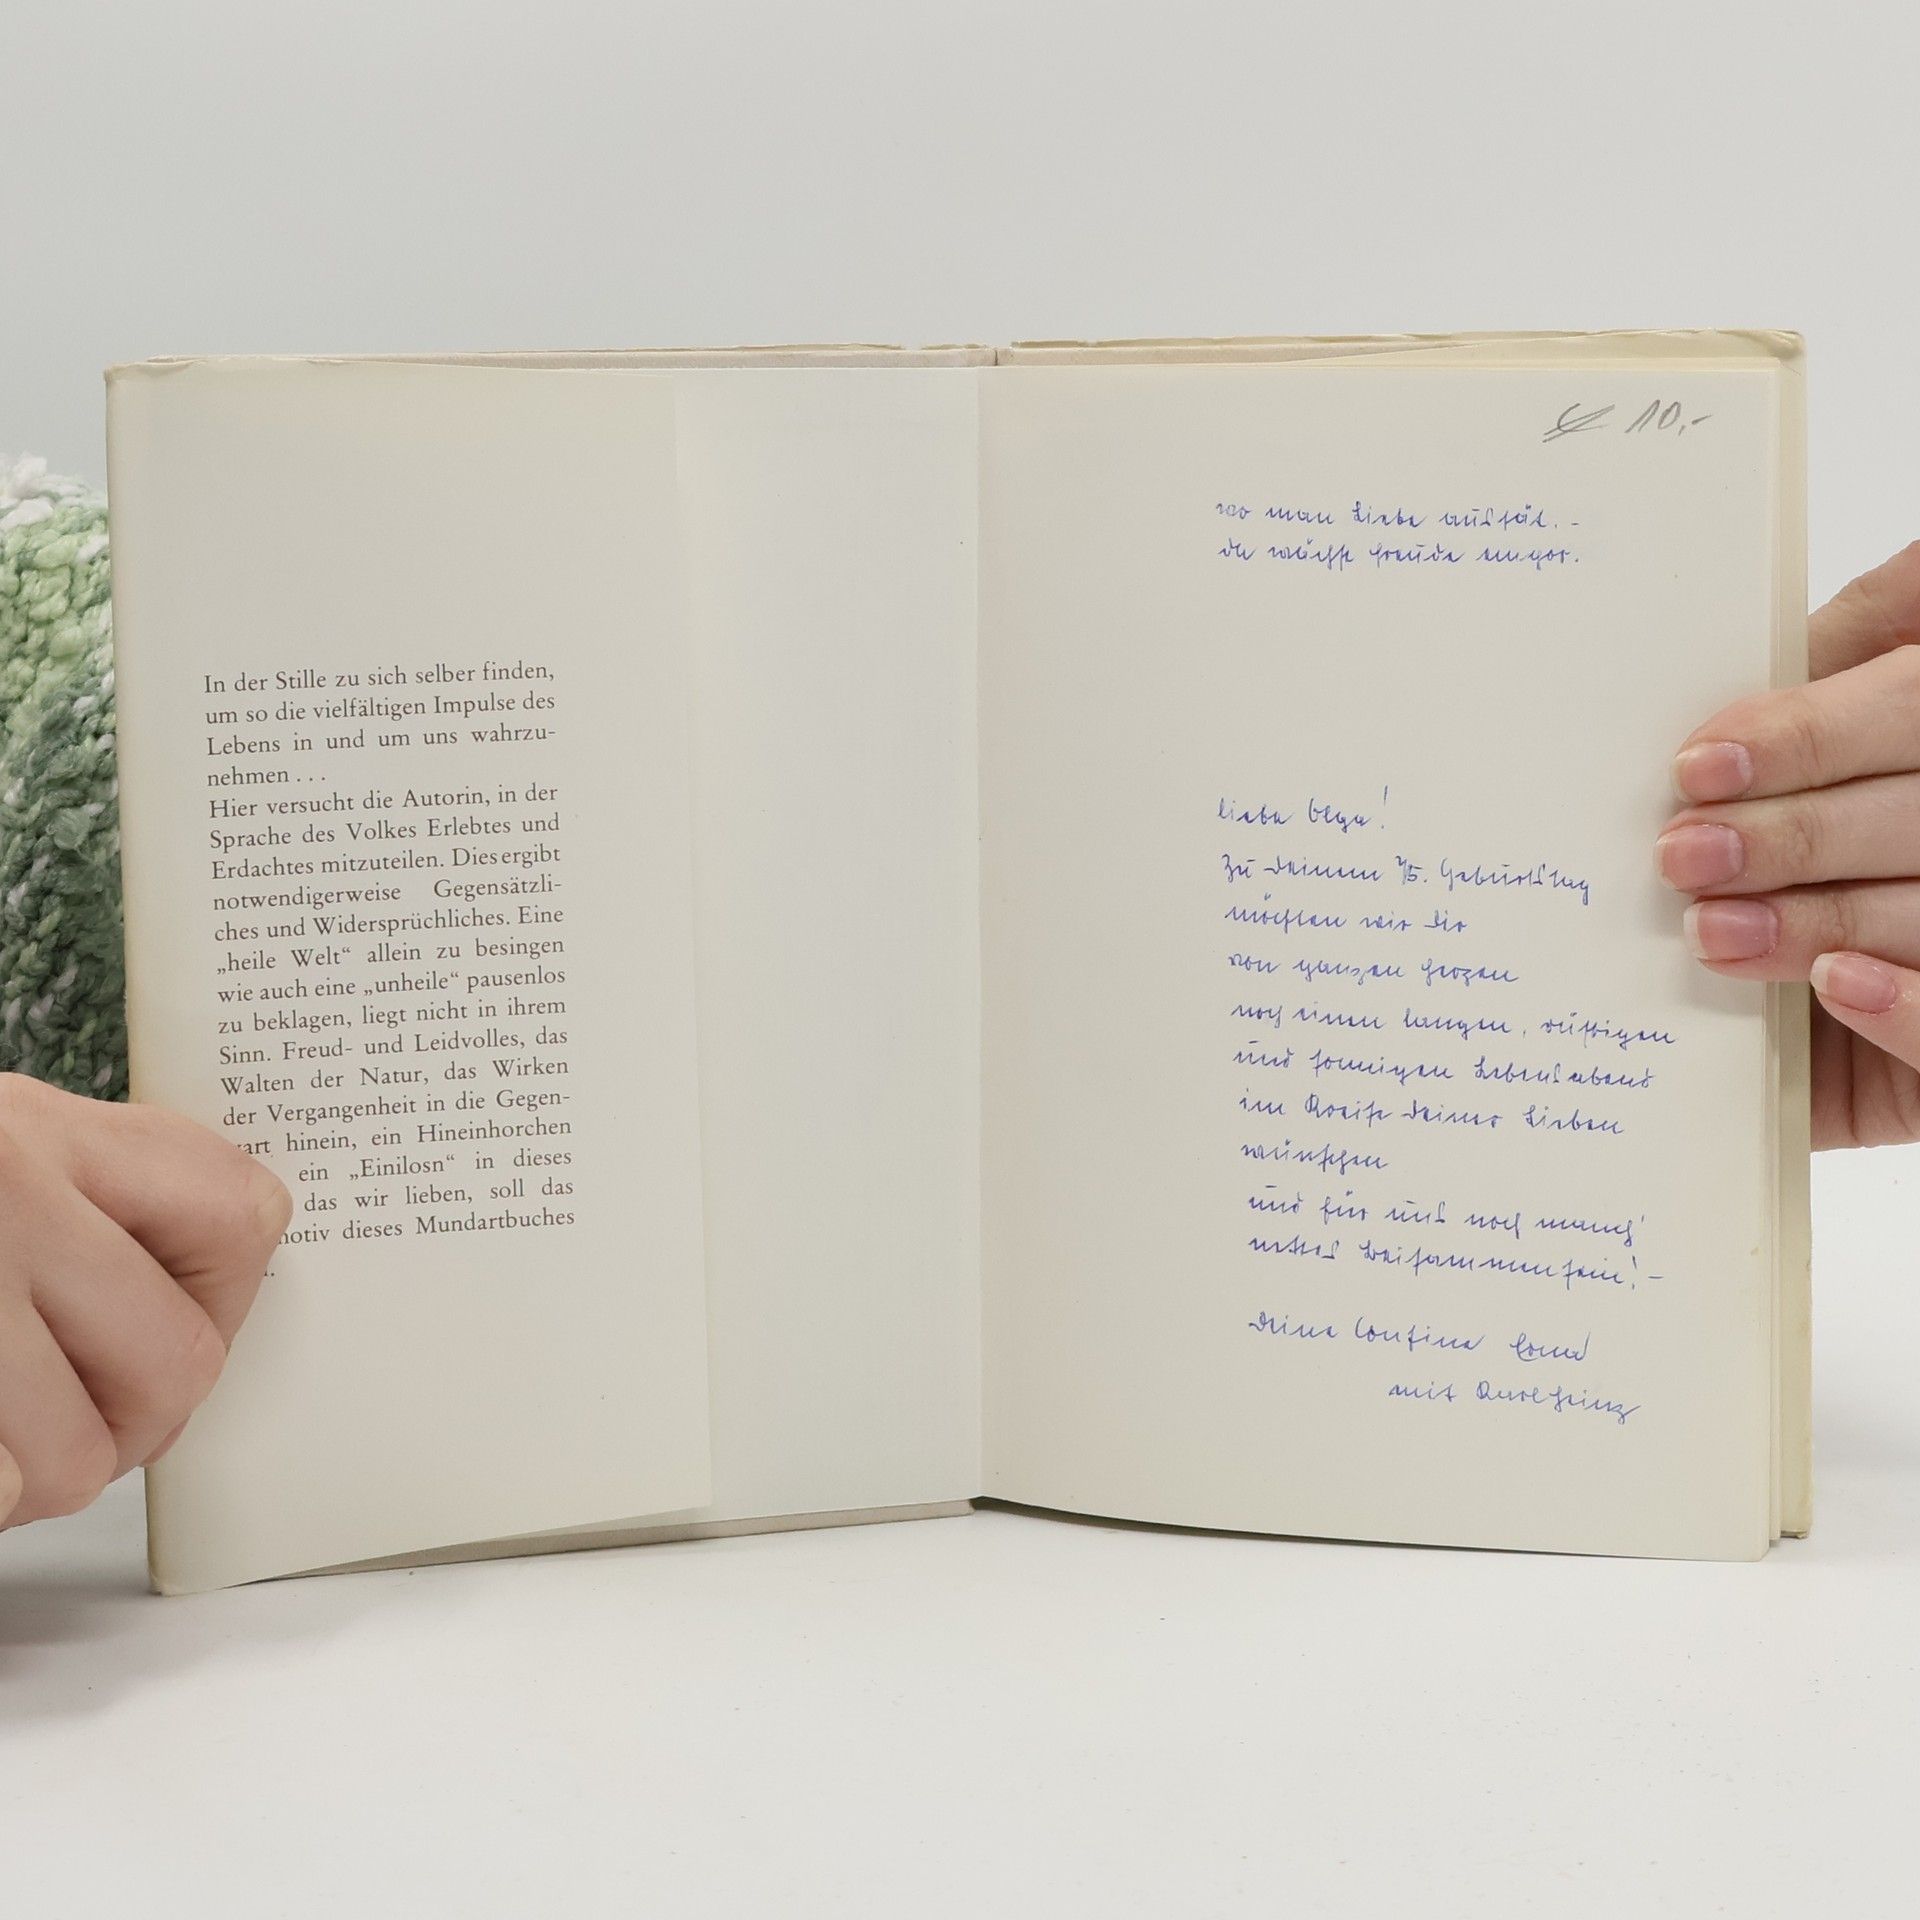 In der Stille zu sich selber finden,
um so die vielfältigen Impulse des
Lebens in und um uns wahrzu-
nehmen . . .
Hier versucht die Autorin, in der
Sprache des Volkes Erlebtes und
Erdachtes mitzuteilen. Dies ergibt
notwendigerweise Gegensätzli-
ches und Widersprüchliches. Eine
„heile Welt“ allein zu besingen
wie auch eine „unheile“ pausenlos
zu beklagen, liegt nicht in ihrem
Sinn. Freud- und Leidvolles, das
Walten der Natur, das Wirken
der Vergangenheit in die Gegen-
wart hinein, ein Hineinhorchen
ein „Einilosn“ in dieses
das wir lieben, soll das
motiv dieses Mundartbuches
10,-
wo man Liebe aussät. -
da wächst Freude empor.
Liebe Olga!
Zu Deinem 75. Geburtstag
möchten wir Dir
von ganzen Herzen
noch einen langen, rüstigen
und sonnigen Lebensabend
im Kreise Deiner Lieben
wünschen
und für uns noch manch'
nettes Beisammensein! -
Deine Cousine
mit Karlheinz